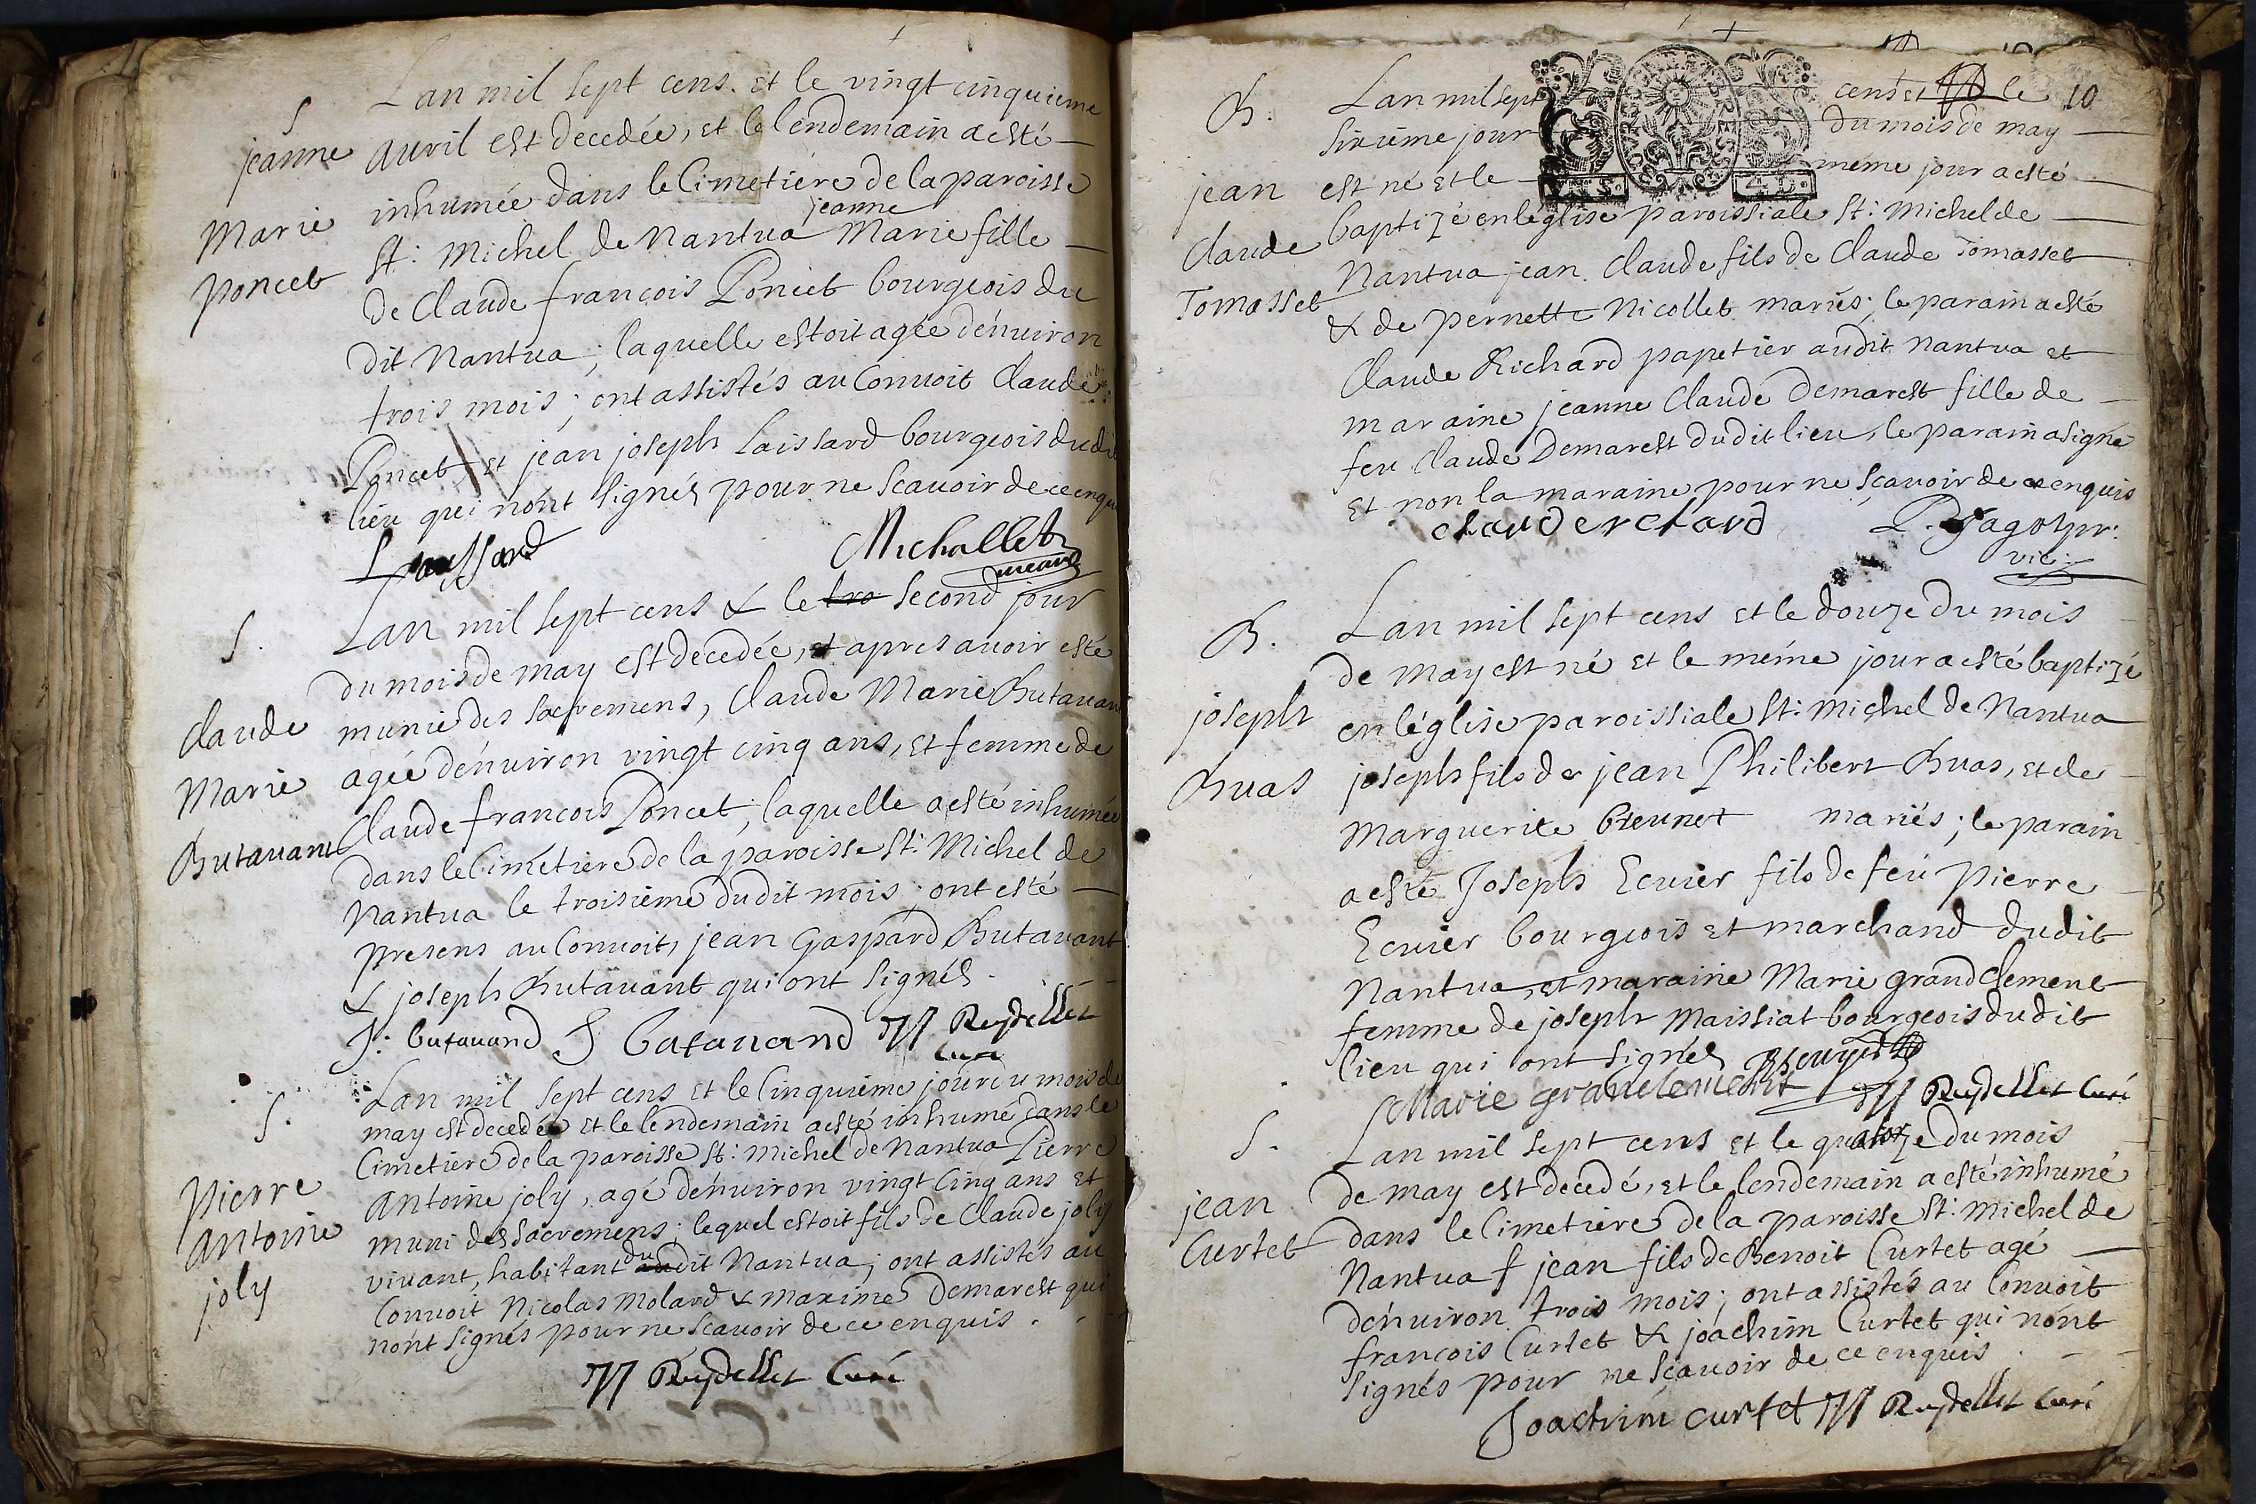 S
jeanne
Marie
Poncet
Lan mil sept cens. et le vingt cinquieme
auril est decedée, et le lendemain a esté
inhumée dans le Cimetiére de la paroisse
St: Michel de Nantua jeanne Marie fille
de Claude françois Poncet bourgeois du
dit Nantua; laquelle estoit agée dénuiron
trois mois; ont assistés au Conuoit Claude
Poncet et jean joseph Laissard bourgeois dudit
lieu qui nónt signés pour ne scauoir de ce enquis
Laissard Michallet vicaire
S.
Claude
Marie
Butauant
Lan mil sept cens & le tro second jour
du mois de may est decedée, et apres auoir esté
munie des sacremens, Claude Marie Butauant
agée dénuiron vingt cinq ans, et femme de
Claude francois Poncet; laquelle a esté inhumée
dans le Cimetiere de la paroisse St: Michel de
Nantua le troisiéme dudit mois; ont esté
presens au Conuoit, jean Gaspard Butauant
& joseph Butauant qui ont signés.
J: butauand J butauand Reydellet
Curé
S.
Pierre
Antoine
joly
Lan mil sept cens et le Cinquiéme jour du mois de
may est decedé et le lendemain a esté inhumé dans le
Cimetiere de la paroisse St: Michel de Nantua Pierre
Antoine joly, agé dénuiron vingt Cinq ans et
muni des sacremens; lequel estoit fils de Claude joly
viuant, habitant du audit Nantua; ont assistés au
Conuoit Nicolas Molard & maxime Demarest qui
nónt signés pour ne scauoir de ce enquis.
Reydellet Curé
10
B.
jean
Claude
Tomasset
Lan mil sept cens et le
sixiéme jour du mois de may
est né et le méme jour a esté
baptizé en léglise paroissiale St: Michel de
Nantua jean Claude fils de Claude Tomasset
& de pernette Nicollet mariés; le parain a esté
Claude Richard papetier audit Nantua et
maraine jeanne Claude Demarest fille de
feu Claude Demarest dudit lieu, le parain a signé
et non la maraine pour ne scauoir de ce enquis
claude richard
vic:
B.
joseph
Buas
Lan mil sept cens et le douze du mois
de may est né et le méme jour a esté baptizé
en léglise paroissiale St: Michel de Nantua
joseph fils de jean Philibert Buas, et de
Marguerite breunet mariés; le parain
a esté Joseph Ecuier fils de feu Pierre
Ecuier bourgeois et marchand dudit
Nantua, et maraine Marie grand Clement
femme de joseph Maissiat bourgeois dudit
lieu qui ont signés
Marie grandclement Reydellet Curé
S.
jean
Curtet
Lan mil sept cens et le quatorze du mois
de may est decedé, et le lendemain a esté inhumé
dans le Cimetiere de la paroisse St: Michel de
Nantua jean fils de Benoit Curtet agé
dénuiron trois mois; ont assistés au Conuoit
francois Curtet & joachim Curtet qui nónt
signés pour ne scauoir de ce enquis.
Joachim curtet Reydellet Curé